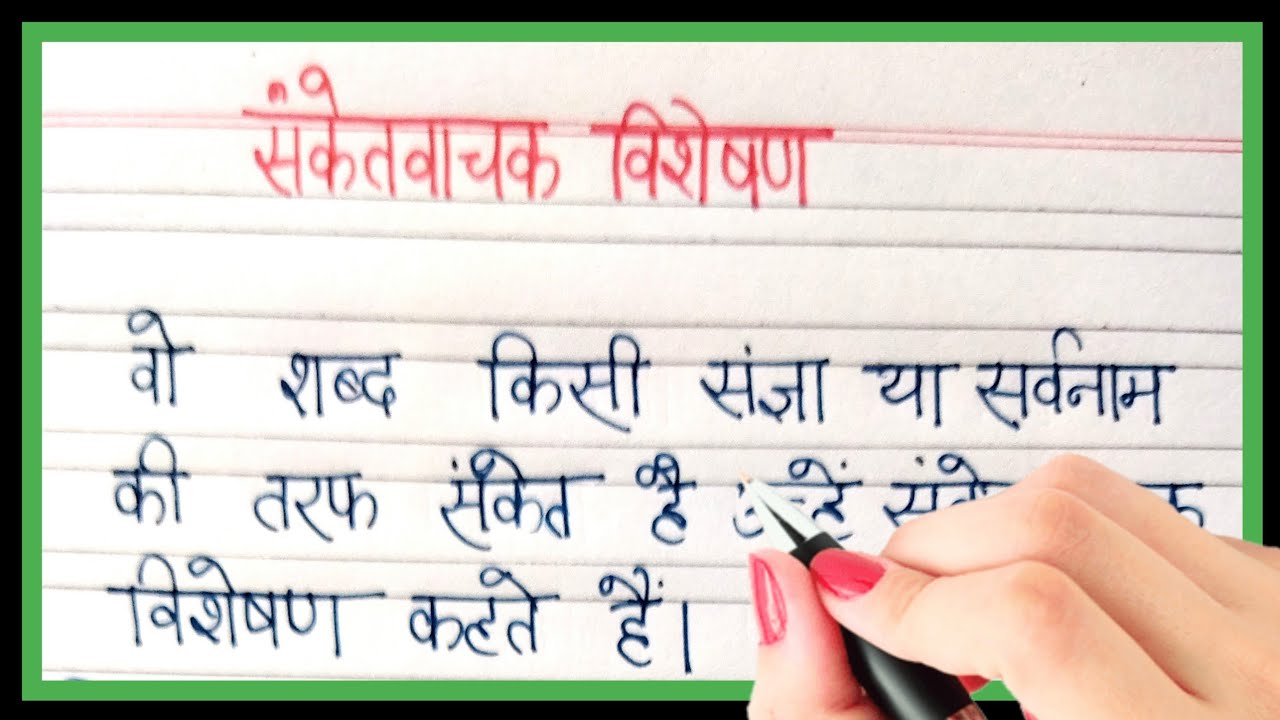 संकेतवाचक विशेषण
वो शब्द किसी संज्ञा या सर्वनाम
की तरफ संकेत है
विशेषण कहते हैं।